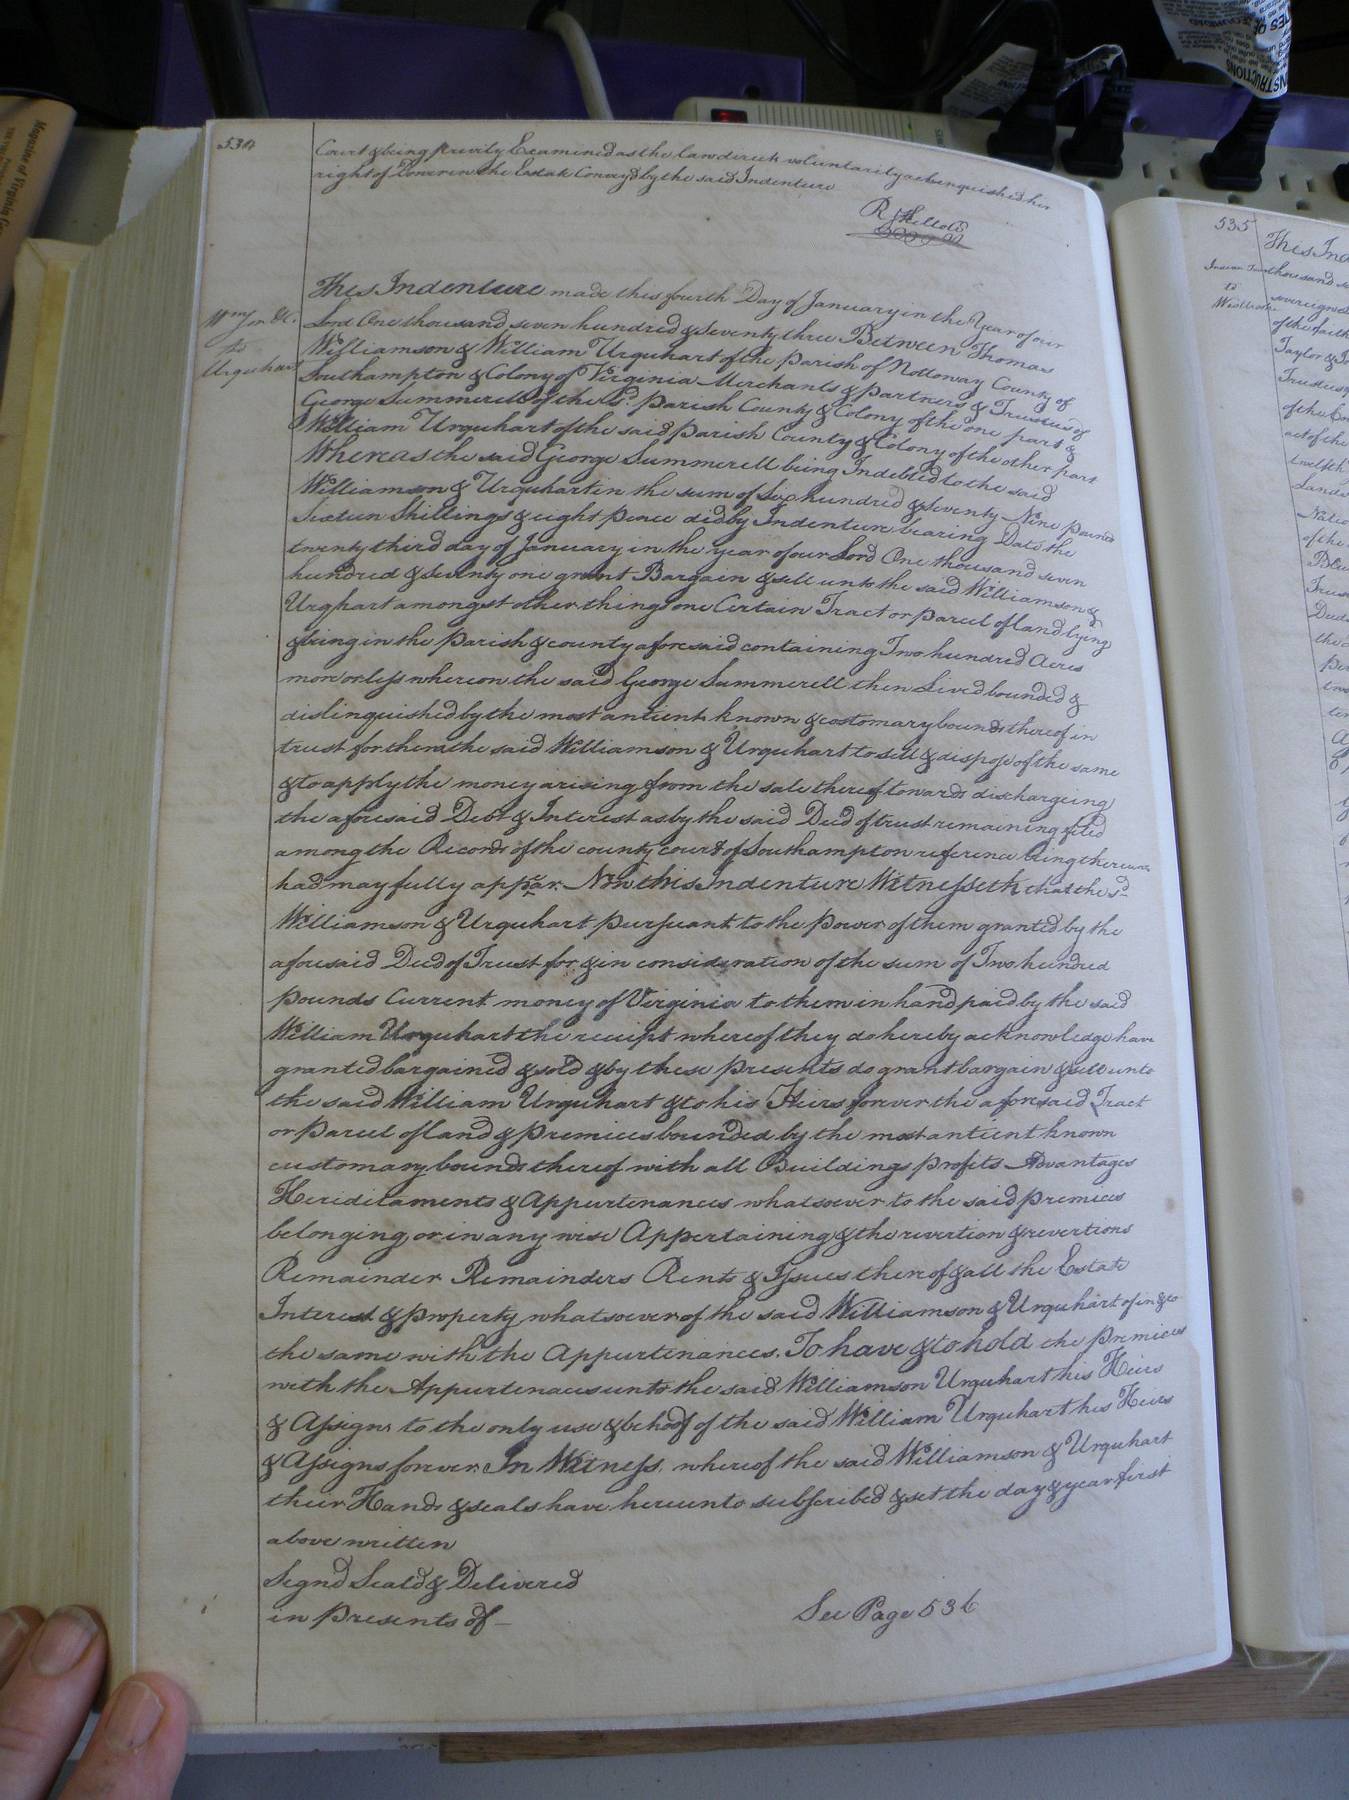 534
Court & being privily Examined as the law directs voluntarily relinquished her
right of Dower in the Estate Convey'd by the said Indenture
This Indenture made this fourth Day of January in the Year of our
Wmson &c.
to
Urquhart
Lord One thousand seven hundred & Seventy three Between Thomas
Williamson & William Urquhart of the Parish of Nottoway County of
Southampton & Colony of Virginia Merchants & partners & Trustees of
George Summerell of the sd. parish County & Colony of the one part &
William Urquhart of the said parish County & Colony of the other part
Whereas the said George Summerell being Indebted to the said
Williamson & Urquhart in the sum of Six hundred & Seventy Nine pounds
Sixteen Shillings & eight pence did by Indenture bearing Date the
twenty third day of January in the year of our Lord One thousand seven
hundred & Seventy one grant Bargain & sell unto the said Williamson &
Urqhart amongst other things one Certain Tract or parcel of land lying
& being in the Parish & county aforesaid containing Two hundred Acres
more or less whereon the said George Summerell then Lived bounded &
distinguished by the most antient known & costomary bounds thereof in
trust for them the said Williamson & Urquhart to sell & dispose of the same
& to apply the money arising from the sale thereof towards dischargeing
the aforesaid Debt & Interest as by the said Deed of trust remaining filed
among the Records of the county court of Southampton reference being thereunto
had may fully appear. Now this Indenture Witnesseth that the sd
Williamson & Urquhart pursuant to the power of them granted by the
aforesaid Deed of Trust for & in consideration of the sum of Two hundred
pounds Current money of Virginia to them in hand paid by the said
William Urquhart the receipt whereof they do hereby acknowledge have
granted bargained & sold & by these presents do grant bargain & sell unto
the said William Urquhart & to his Heirs forever the aforesaid Tract
or Parcel of land & premices bounded by the most antient known
customary bounds thereof with all Buildings profits Advantages
Hereditaments & Appurtenances whatsoever to the said premices
belonging or in any wise Appertaining & the revertion & revertions
Remainder Remainders Rents & Issues thereof & all the Estate
Interest & property whatsoever of the said Williamson & Urquhart of in & to
the same with the Appurtenances. To have & to hold the Premices
with the Appurtenaces unto the said Williamson Urquhart his Heirs
& Assigns to the only use & behoof of the said William Urquhart his Heirs
& Assigns forever. In Witness. whereof the said Williamson & Urquhart
their Hands & seals have hereunto subscribed & set the day & year first
above written
Segnd Seald & Delivered
in presents of
See Page 536
535
This Ind
to
thousand
sovereign
of the
Taylor &
Trustees
of the
act of the
twelfth
Lands
of the
the
Magazine of Virginia